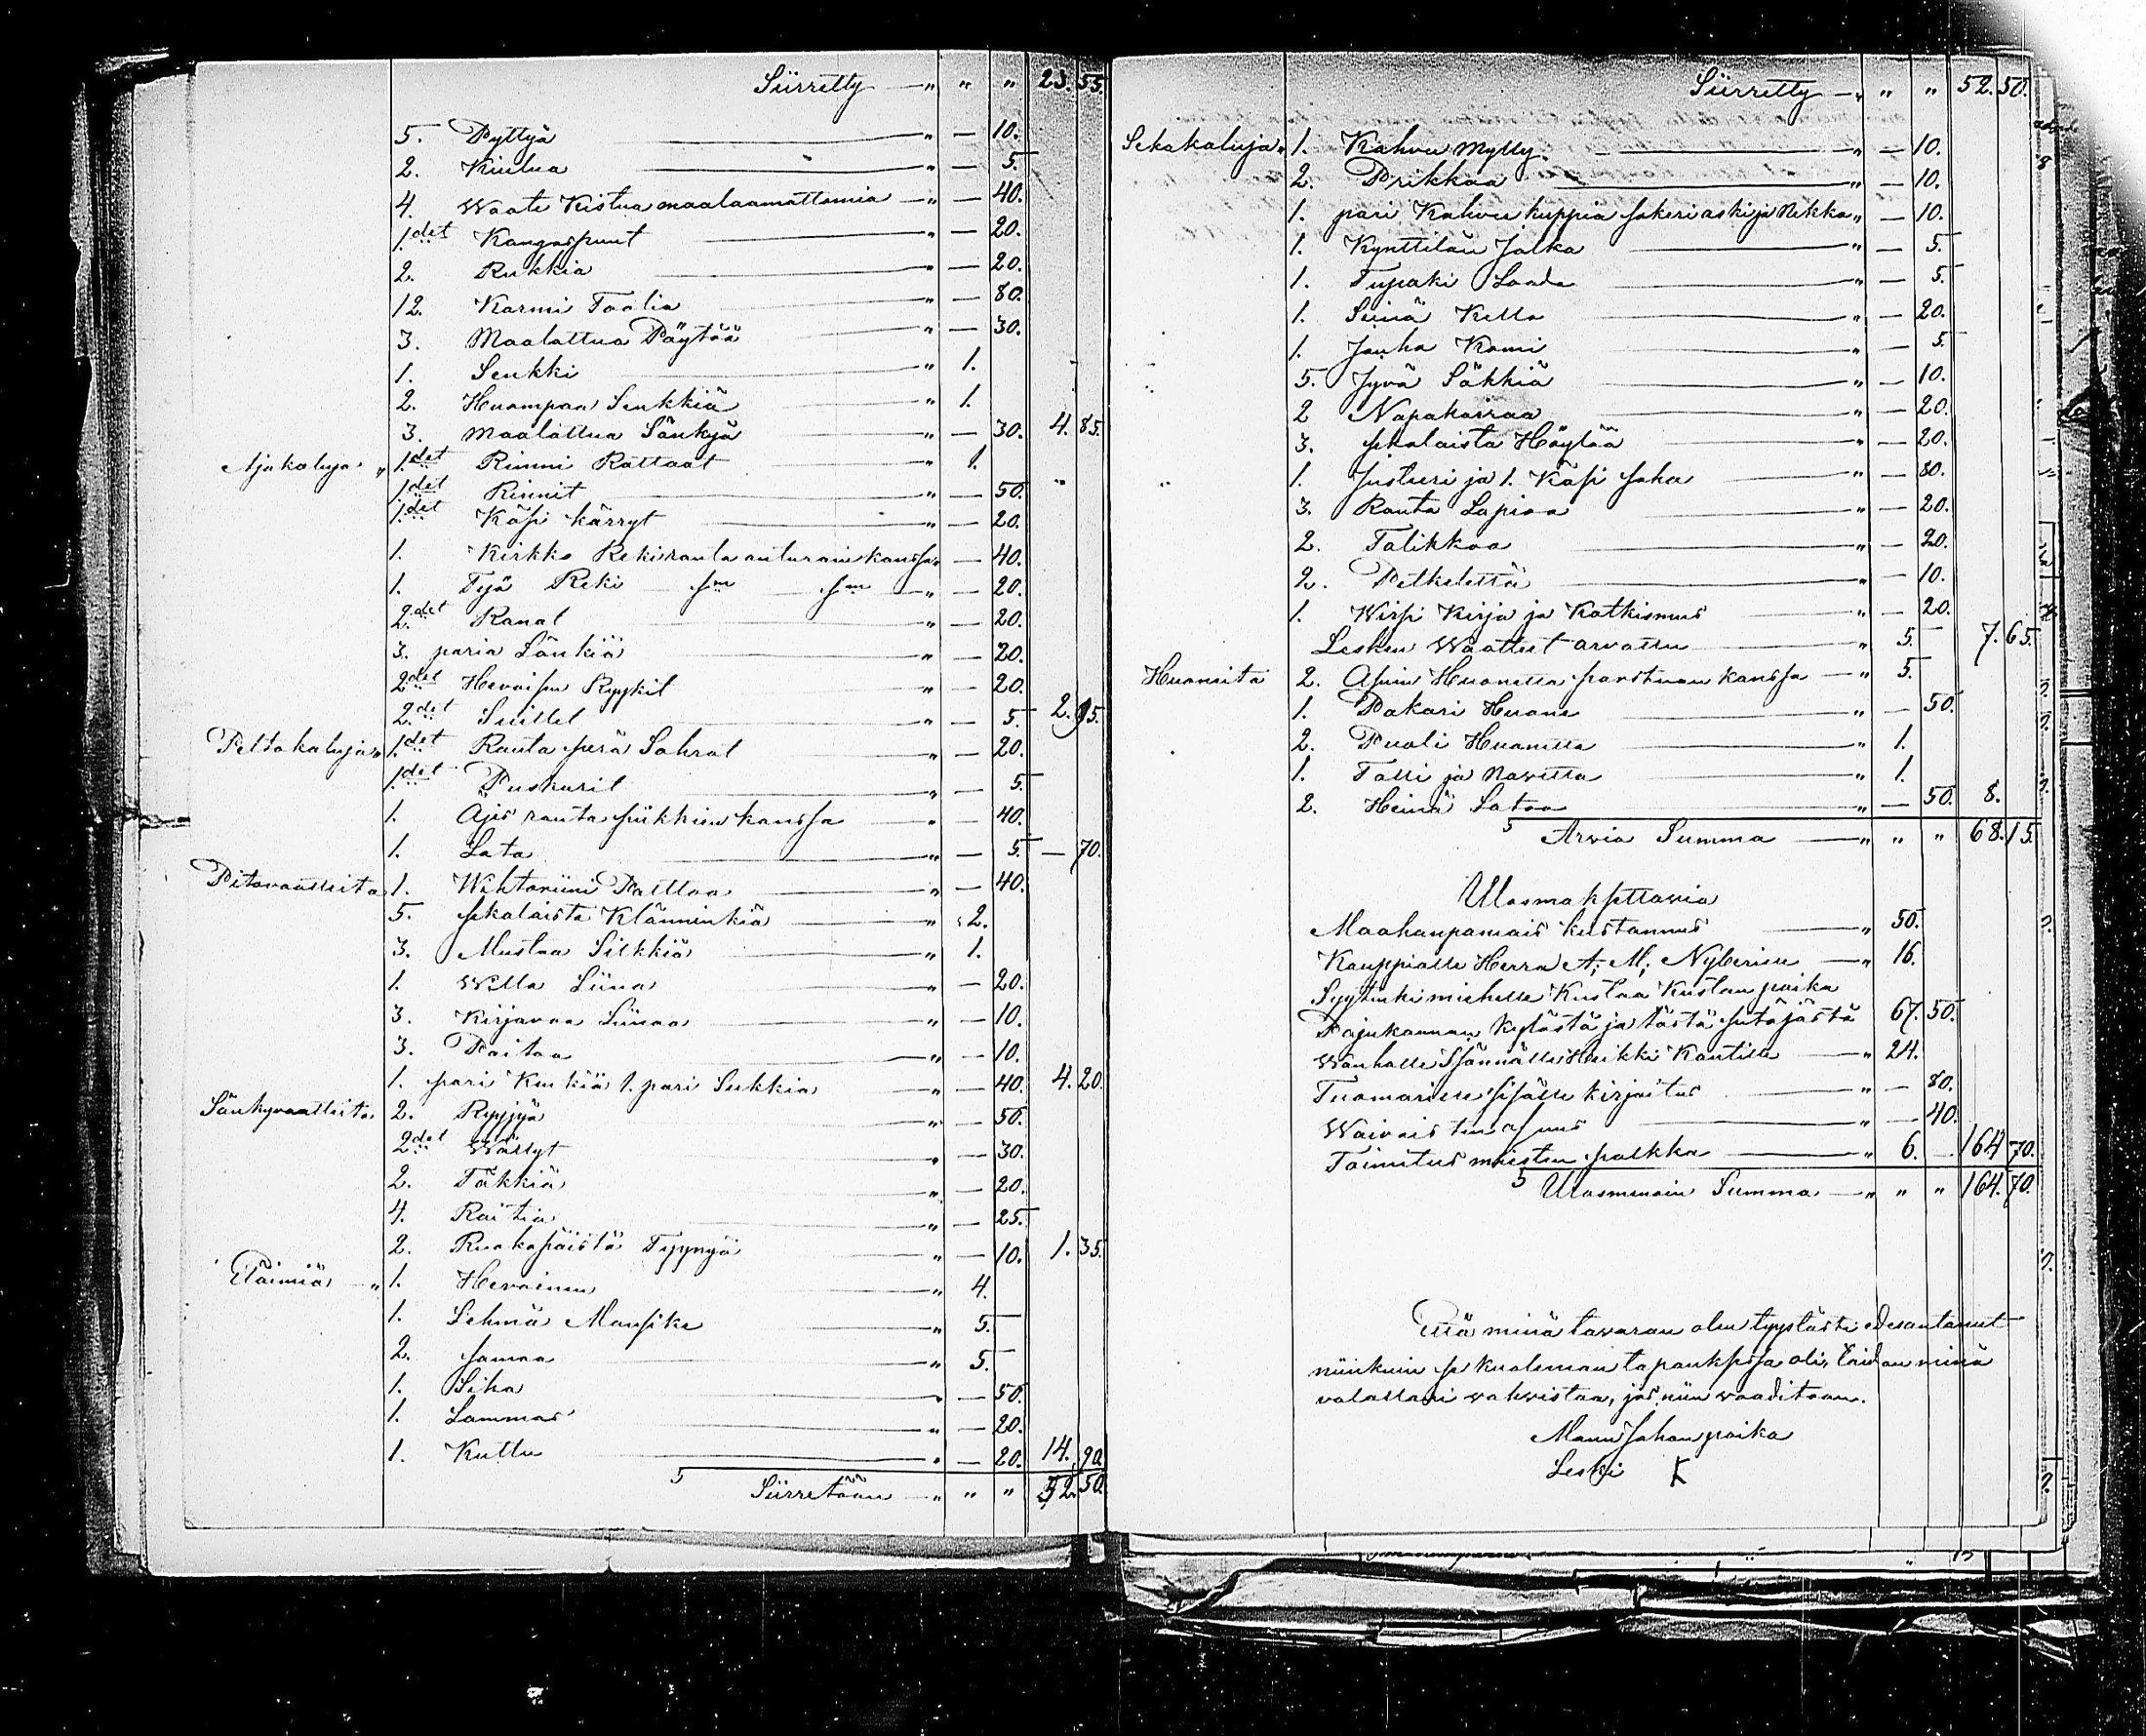 Siirretty — " " " 23. 55.
5. Pyttyä — " — 10.
2. Kiulua — " — 5.
4. Waate Kistua maalaamattomia — " — 40.
1.det Kangaspuut — " — 20.
2. Rukkia — " — 20.
12. Karmi Toolia — " — 80.
3. Maalattua Pöytää — " — 30.
1. Senkki — " 1.
2. Huonpaa Senkkiä — " 1.
3. Maalattua Sänkyä — " — 30. 4. 85.
Ajokaluja " 1.det Rinni Rattaat — " 1.
1.det Rinnit — " — 50. "
1.det Käsi kärryt — " — 20.
1. Kirkko Reki rauta anturain kanssa " — 40.
1. Työ Reki — sm — sm — " — 20.
2.det Ranat — " — 20.
3. paria Länkiä — " — 20.
2.det Hevoisen Ryykit — " — 20.
2.det Suillet — " — 5. 2. 95.
Peltokaluja " 1.det Rauta perä Sahrat — " — 20.
1.det Puskurit — " — 5.
1. Ajes rauta piikkien kanssa — " — 40.
1. Lata — " — 5. — 70.
Pitovaatteita 1. Wihtoriini Palttoo — " — 40.
5. sekalaista Klänninkiä — " 2.
3. Mustaa Silkkiä — " 1.
1. Willa Liina — " — 20.
3. Kirjavaa Liinaa — " — 10.
3. Paitaa — " — 10.
1. pari Kenkiä 1. pari Sukkia — " — 40. 4. 20.
Sänkyvaatteita 2. Ryyjyä — " — 50.
2.det Wällyt — " — 30.
2. Täkkiä — " — 20.
4. Raitia — " — 25.
2. Ruokopäistä Tyynyä — " — 10. 1. 35.
Eläimiä — " 1. Hevoinen — " 4.
1. Lehmä Mansike — " 5.
2. samaa — " 5.
1. Sika — " — 50.
1. Lammas — " — 20.
1. Kuttu — " — 20. 14. 90.
Siirretään — " " " 52. 50.
Siirretty — " " " 52. 50.
Sekakaluja " 1. Kahvu Mylly — " — 10.
2. Prikkaa — " — 10.
1. pari Kahvu kuppia sokeri aski ja Nekka " — 10.
1. Kynttilän Jalka — " — 5.
1. Tupaki Laada — " — 5.
1. Seinä Kello — " — 20.
1. Jauho Komi — " — 5.
5. Jyvä Säkkiä — " — 10.
2 Napakairaa — " — 20.
3. sekalaista Höylää — " — 20.
1. Justieri ja 1. Käsi saha — " — 80.
3. Rauta Lapiaa — " — 20.
2. Talikkoa — " — 20.
2. Petkelettä — " — 10.
1. Wirsi Kirja ja Katkismus — " — 20.
Lesken Waatteet arvattu — " 5. — 7. 65.
Huoneita 2. Asuin Huonetta porstuan kanssa — " 5.
1. Pakari Huone — " — 50.
2. Puoli Huonetta — " 1.
1. Talli ja Navetta — " 1.
2. Heinä Latoa — " — 50. 8.
Arvio Summa — " " " 68. 15.
Ulosmaksettavia
Maahanpaniais kustannus — " 50.
Kauppialle Herra A; M; Nyberien — " 16.
Syytinkimiehelle Kustaa Kustaan poika
Pajukannan Kylästä ja tästä pitäjästä 67. 50.
Wanhalle Isännälle Heikki Kantille — " 24.
Tuomarille sisälle kirjoitus — " — 80.
Waivaisten osuus — " — 40.
Toimitus miesten palkka — " 6. — 164 70.
Ulosmenoin Summa — " " " 164. 70.
Että minä tavaran olen tyystästi edesantanut
niinkuin se kuoleman tapauksessa oli, taidan minä
valallani vahvistaa, jos niin vaaditaan.
Manu Johan poika
Leski K